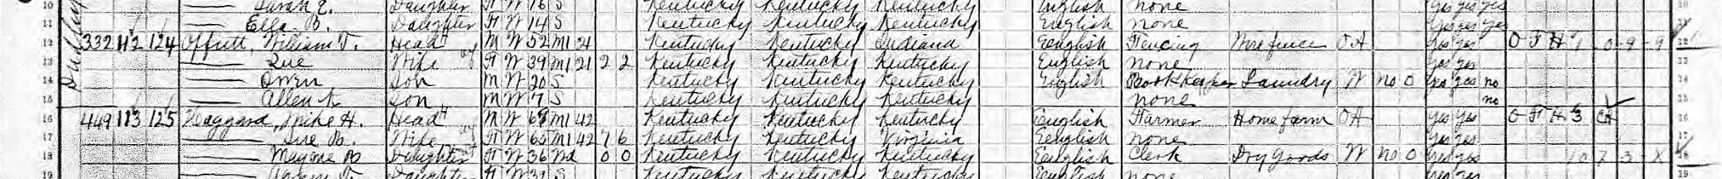 10 Sarah E. Daughter F W 16 S Kentucky Kentucky Kentucky English none yes yes yes
11 Ella B. Daughter F W 14 S Kentucky Kentucky Kentucky English none yes yes yes
12 332 112 124 Offutt, William T. Head M W 52 M1 21 Kentucky Kentucky Indiana English Fencing Wire fence OA yes yes O F H 1 0-9-9 12
13 Sue Wife F W 39 M1 21 2 2 Kentucky Kentucky Kentucky English none yes yes
14 Owen Son M W 20 S Kentucky Kentucky Kentucky English Bookkeeper Laundry W no 0 yes yes no 14
15 Allen Son M W 7 S Kentucky Kentucky Kentucky none no 15
16 449 113 125 Haggard, H. Head M W M1 42 Kentucky Kentucky Kentucky English Farmer Home farm OA yes yes O F H 3 16
17 B. Wife F W 65 M1 42 7 6 Kentucky Kentucky Virginia English none yes yes 17
18 B Daughter F W 36 Wd 0 0 Kentucky Kentucky Kentucky English Clerk Dry Goods W no 0 yes yes 10 7-3-X
Daughter F W S Kentucky Kentucky Kentucky English none yes yes 19